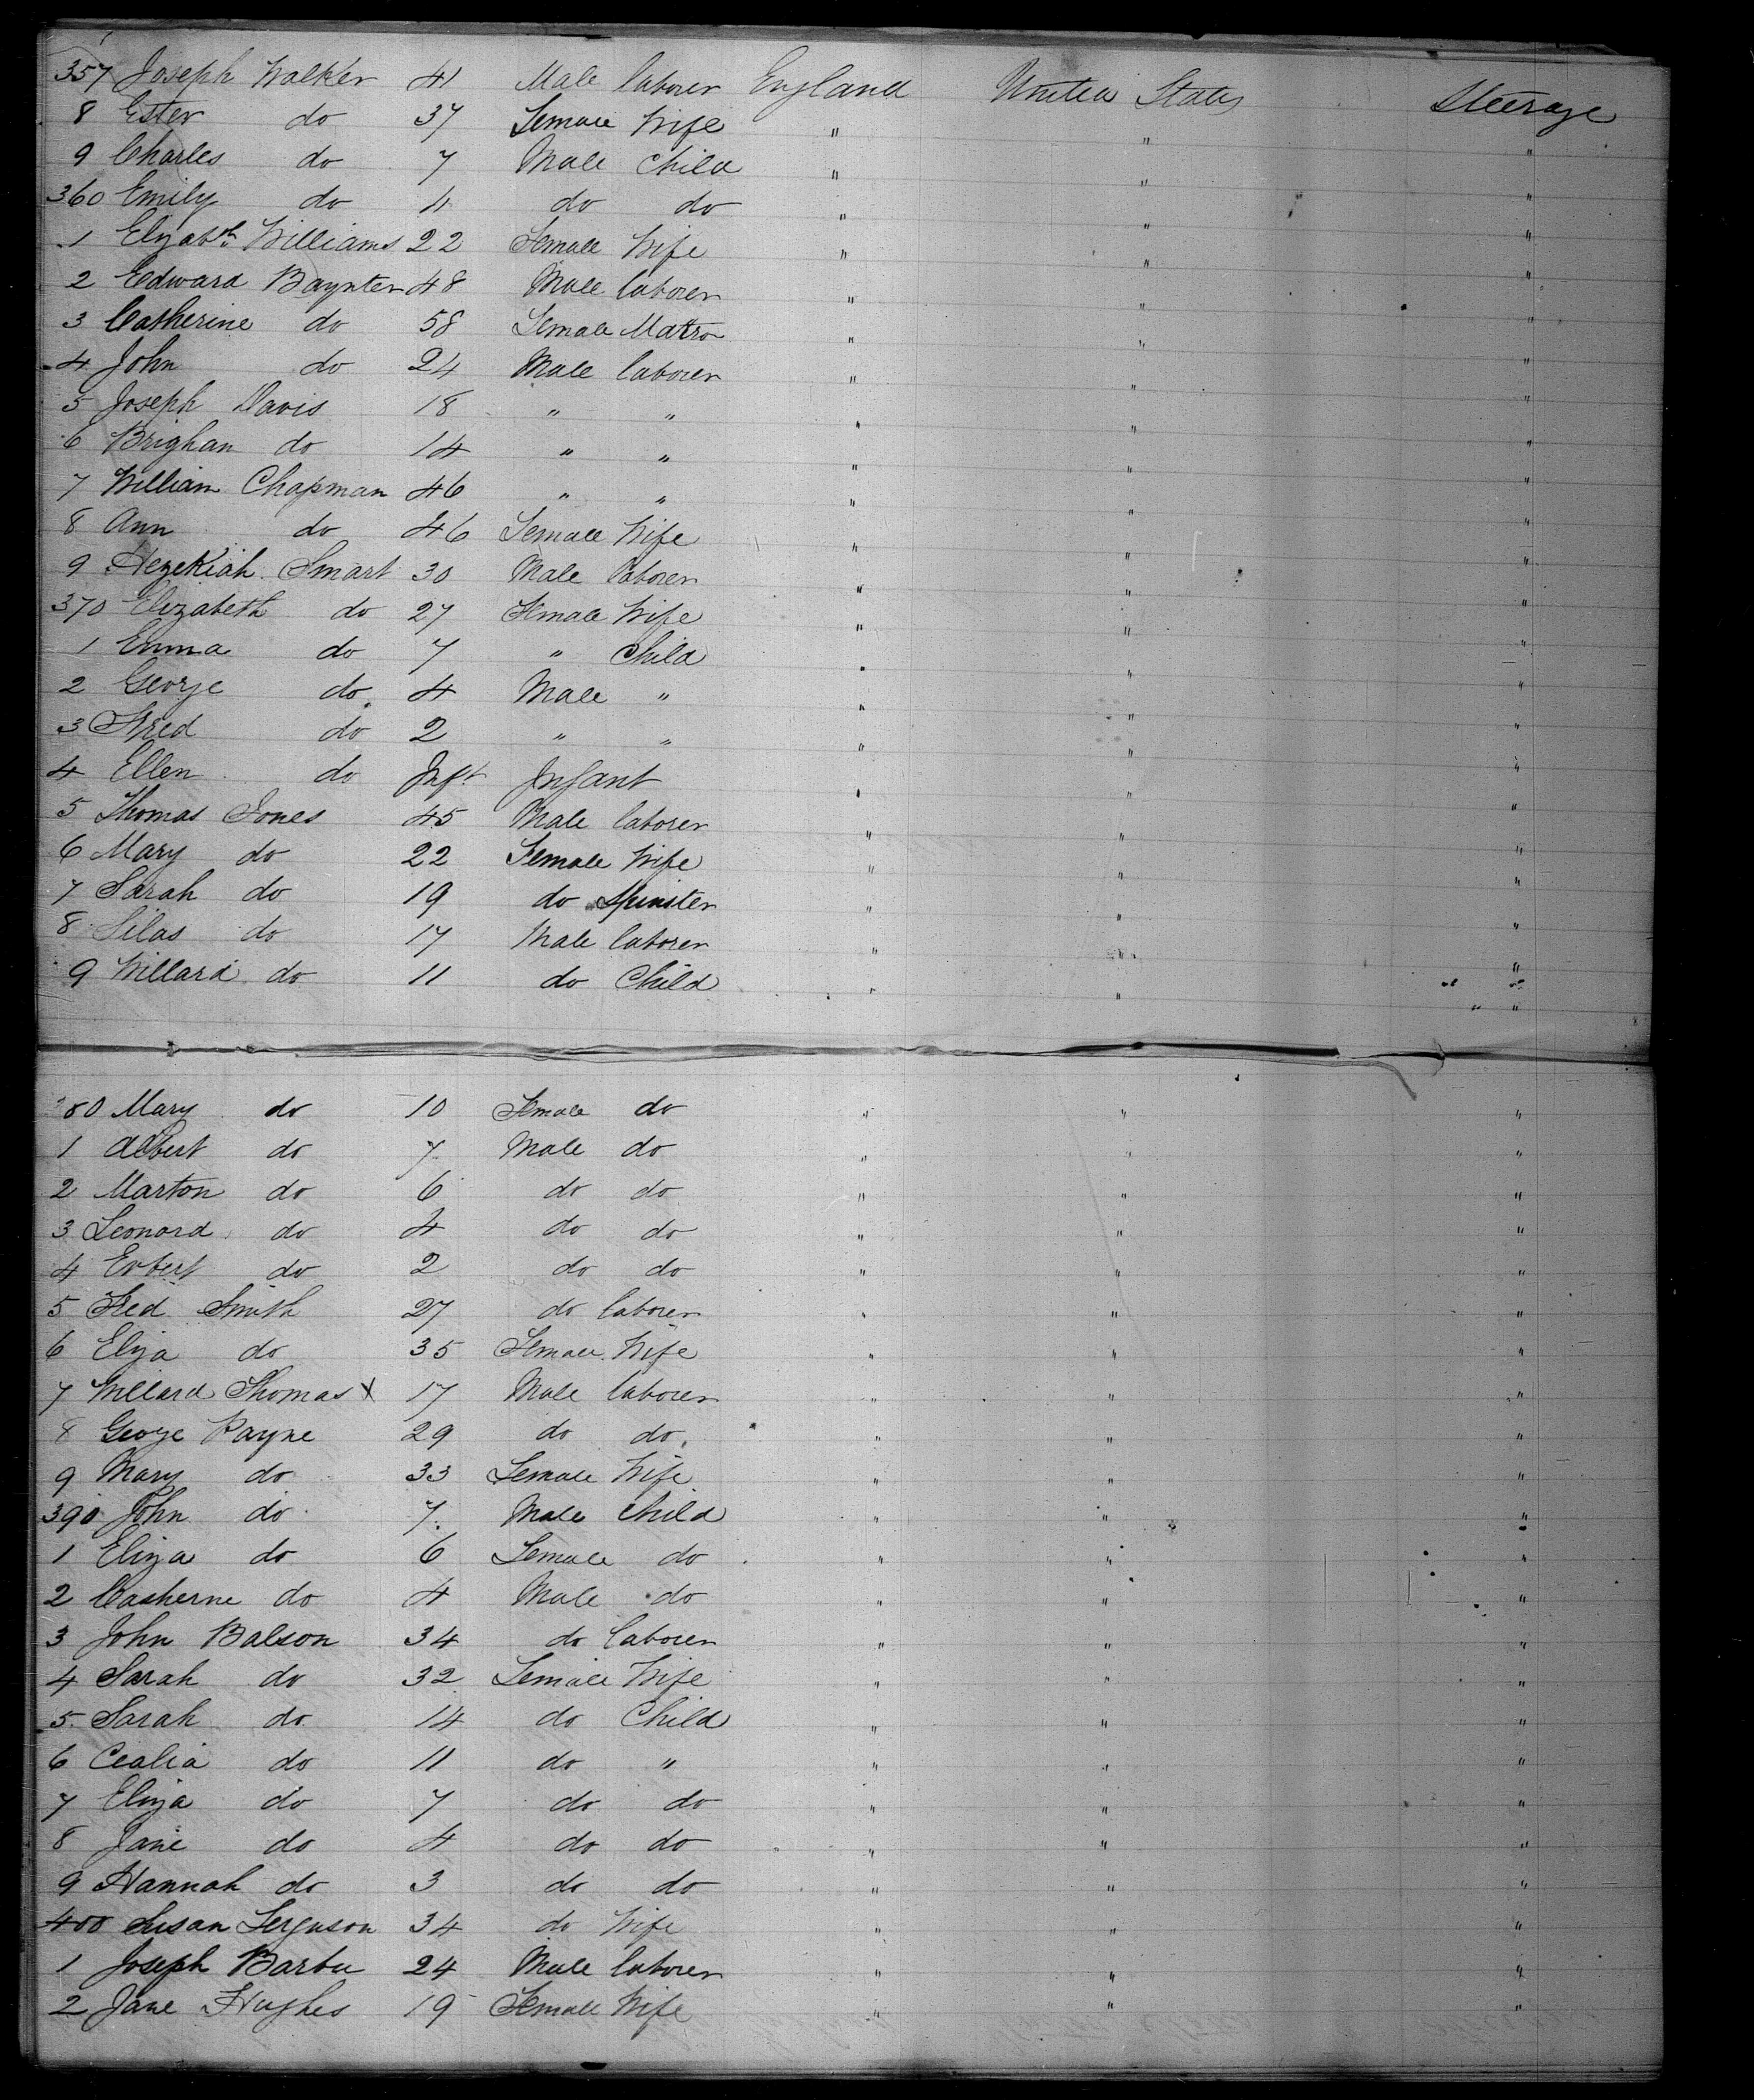 357 Joseph Walker 41 Male laborer England United States Steerage
8 Ester do 37 Female Wife " " "
9 Charles do 7 Male Child " " "
360 Emily do 11 do do " " "
1 Elizabth Williams 22 Female Wife " " "
2 Edward Baynten 48 Male laborer " " "
3 Catherine do 58 Female Matron " " "
4 John do 24 Male laborer " " "
5 Joseph Davis 18 " " " " "
6 Brighan do 14 " " " " "
7 William Chapman 46 " " " " "
8 Ann do 46 Female Wife " " "
9 Hezekiah Smart 30 Male laborer " " "
370 Elizabeth do 27 Female Wife " " "
1 Emma do 7 " Child " " "
2 George do 4 Male " " " "
3 Fred do 2 " " " " "
4 Ellen do Inft Infant " " "
5 Thomas Jones 45 Male laborer " " "
6 Mary do 22 Female Wife " " "
7 Sarah do 19 do Spinster " " "
8 Silas do 17 Male laborer " " "
9 Willard do 11 do Child " " "
380 Mary do 10 Female do " " "
1 Albert do 7 Male do " " "
2 Marton do 6 do do " " "
3 Leonard do 4 do do " " "
4 Erbert do 2 do do " " "
5 Fred Smith 27 do laborer " " "
6 Eliza do 35 Female Wife " " "
7 Willard Thomas x 17 Male laborer " " "
8 George Payne 29 do do " " "
9 Mary do 33 Female Wife " " "
390 John do 7 Male Child " " "
1 Eliza do 6 Female do " " "
2 Casherne do 4 Male do " " "
3 John Balson 34 do laborer " " "
4 Sarah do 32 Female Wife " " "
5 Sarah do 14 do Child " " "
6 Cealia do 11 do " " " "
7 Eliza do 7 do do " " "
8 Jane do 4 do do " " "
9 Hannah do 3 do do " " "
400 Susan Ferguson 34 do Wife " " "
1 Joseph Barbu 24 Male laborer " " "
2 Jane Hughes 19 Female Wife " " "